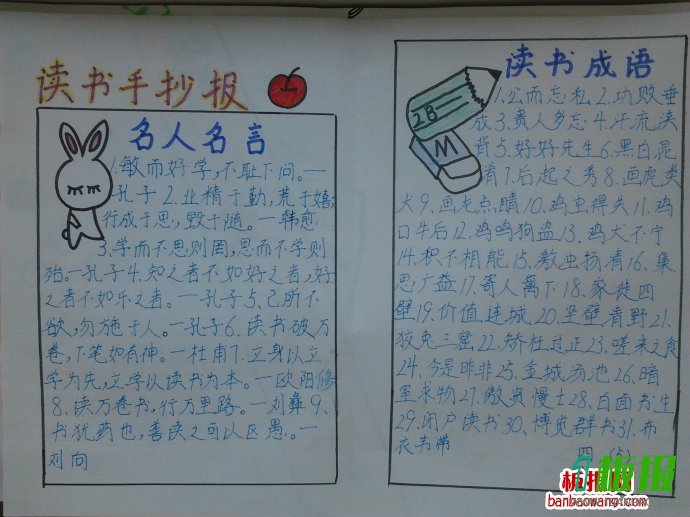 读书手抄报
名人名言
1.敏而好学,不耻下问。一
孔子2.业精于勤,荒于嬉;
行成于思,毁于随。一韩愈
3.学而不思则罔,思而不学则
殆。一孔子4.知之者不如好之者,好
之者不如乐之者。一孔子5.己所不
欲,勿施于人。一孔子6.读书破万
卷,下笔如有神。一杜甫7.立身以立
学为先,立学以读书为本。一欧阳修
8.读万卷书,行万里路。一刘彝9、
书犹药也,善读之可以医愚。一
刘向
读书成语
1.公而忘私2.功败垂
成3.贵人多忘4.汗流浃
背5.好好先生6.黑白混
淆7.后起之秀8.画虎类
犬9.画龙点睛10.鸡虫得失11.鸡
口牛后12.鸡鸣狗盗13.鸡犬不宁
14.积不相能15.激浊扬清16.集
思广益17.寄人篱下18.家徒四
壁19.价值连城20.坚壁清野21.
狡兔三窟22.矫枉过正23.嗟来之食
24.今是昨非25.金城汤池26.暗
室求物27.傲贤慢士28.白面书生
29.闭户读书30、博览群书31.布
衣韦带
四 (5)
28
M
板报
板报网
banbaowang.com